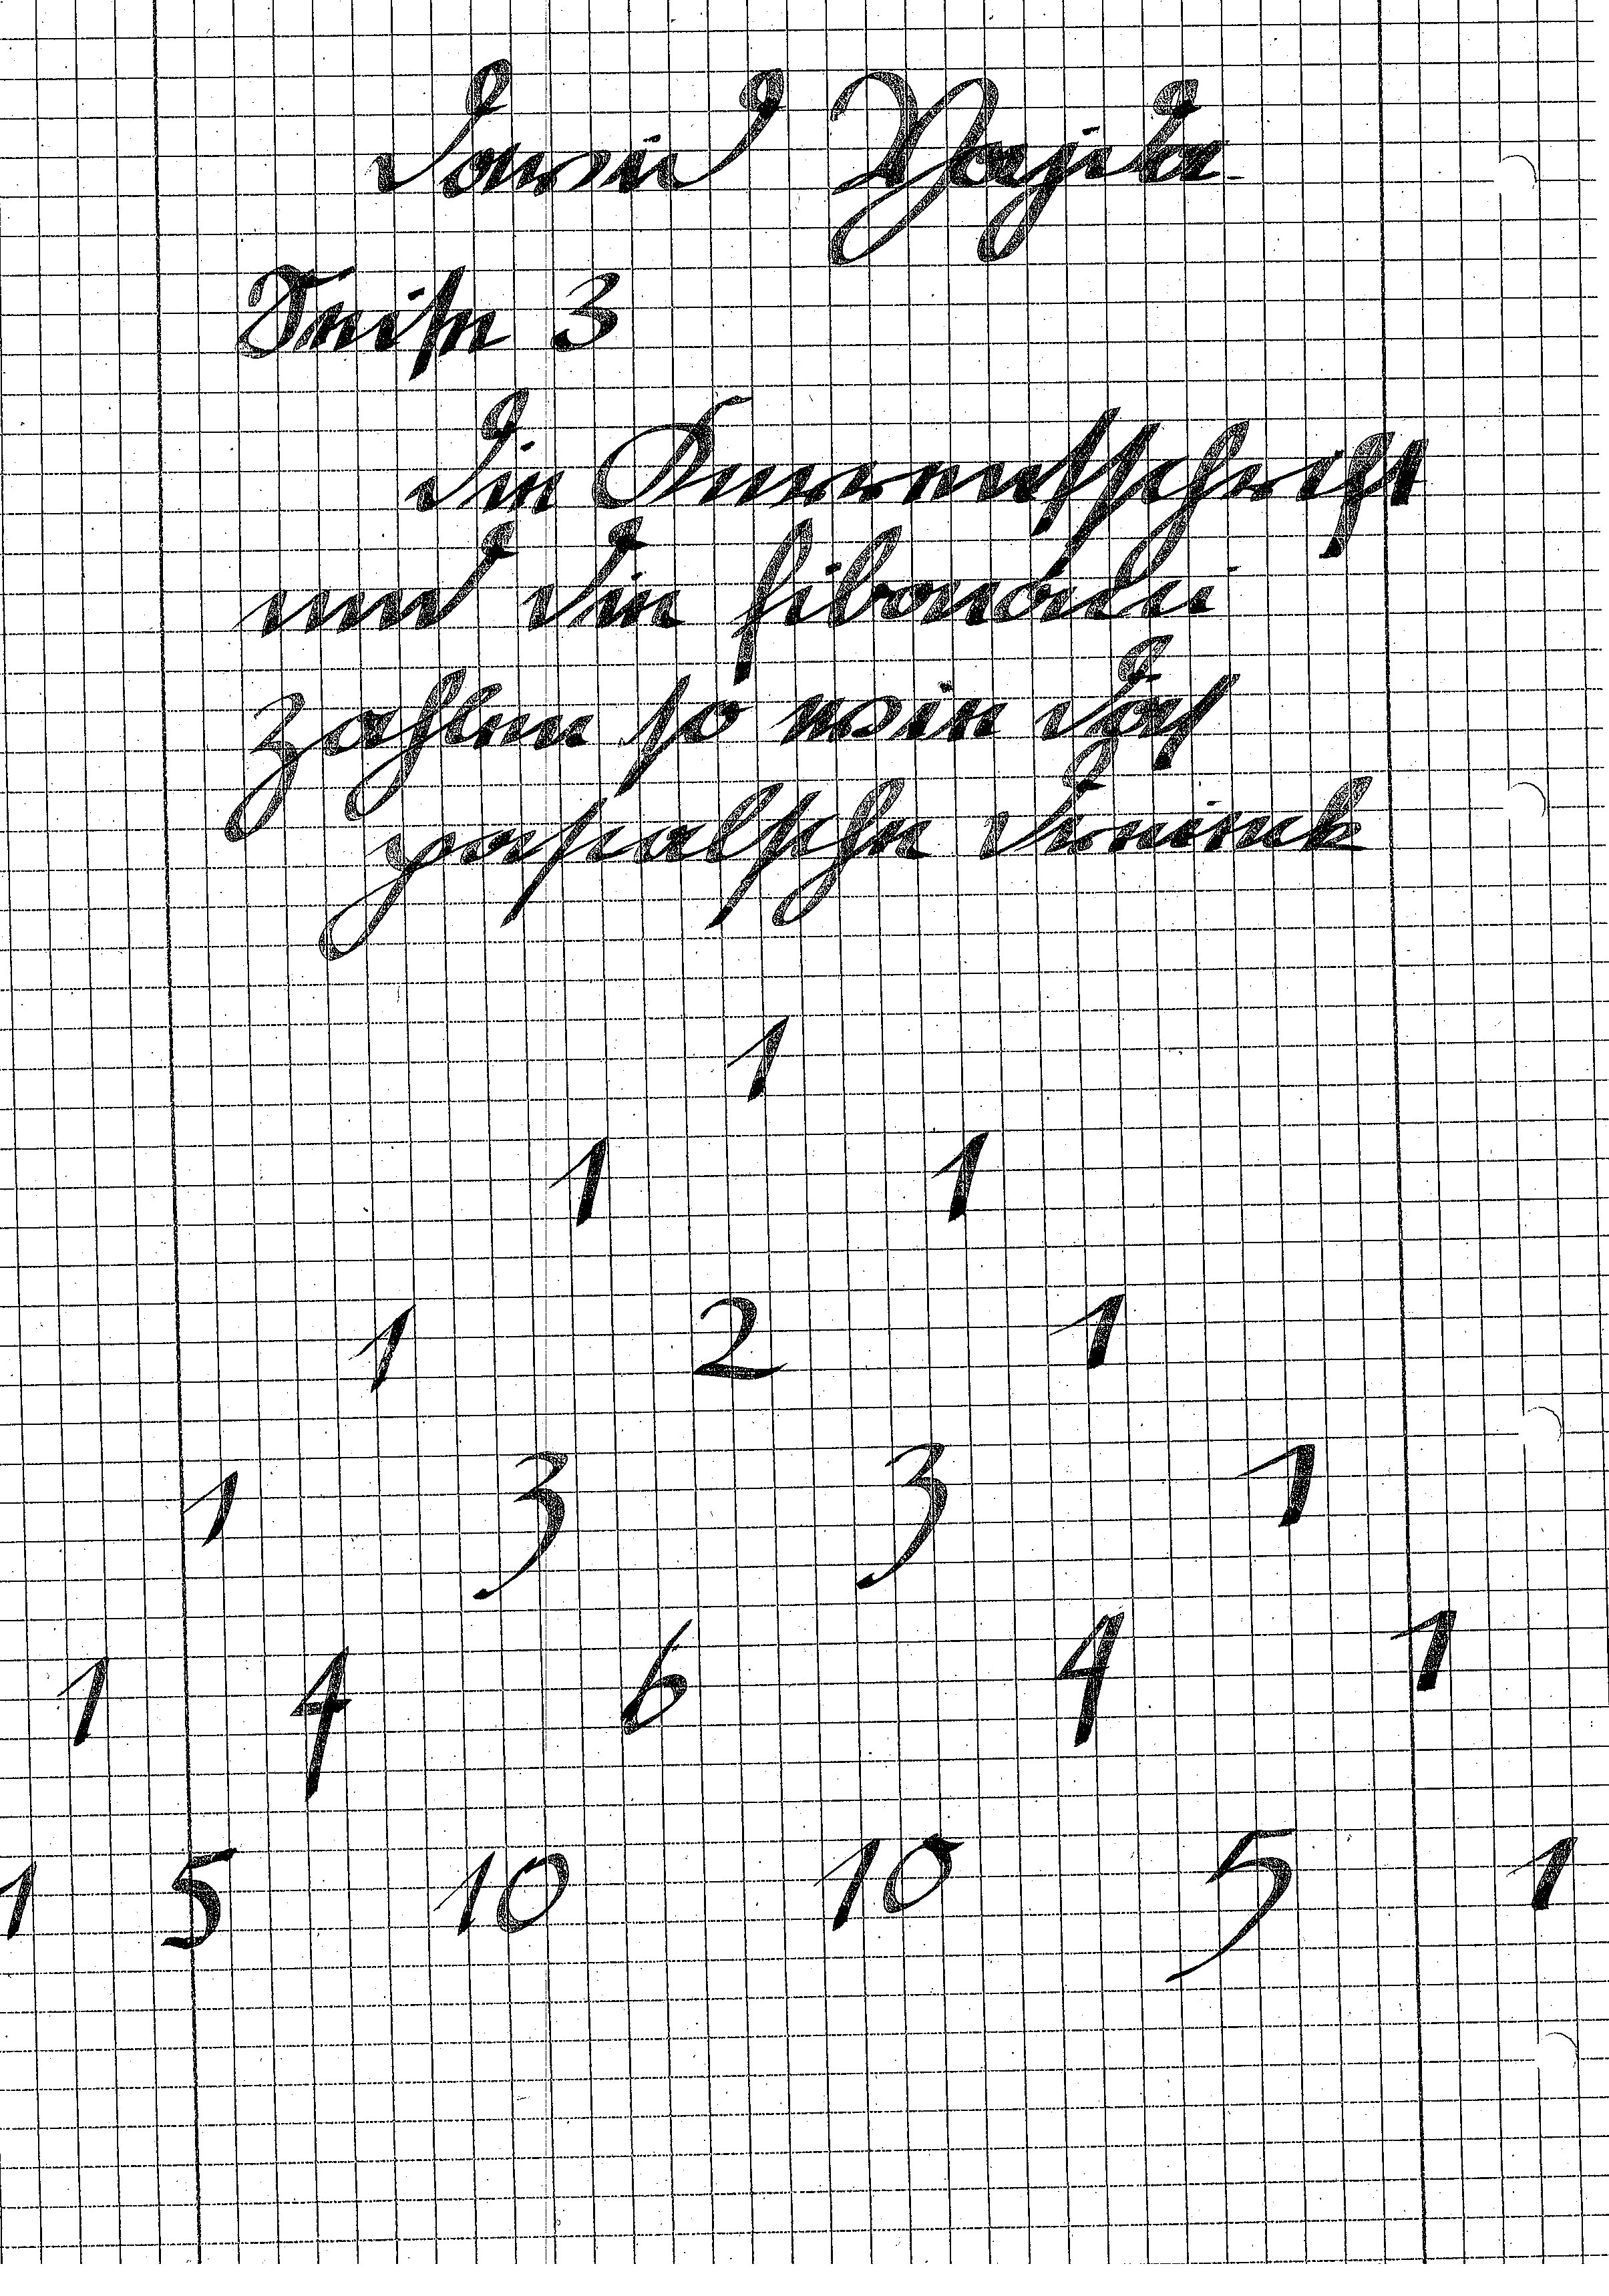 David Vajda
3
die Kurrentschrift
und die fibonacci
zahlen so wie das
pascalsche dreieck
1
1 1
1 2 1
1 3 3 1
1 4 6 4 1
1 5 10 10 5 1